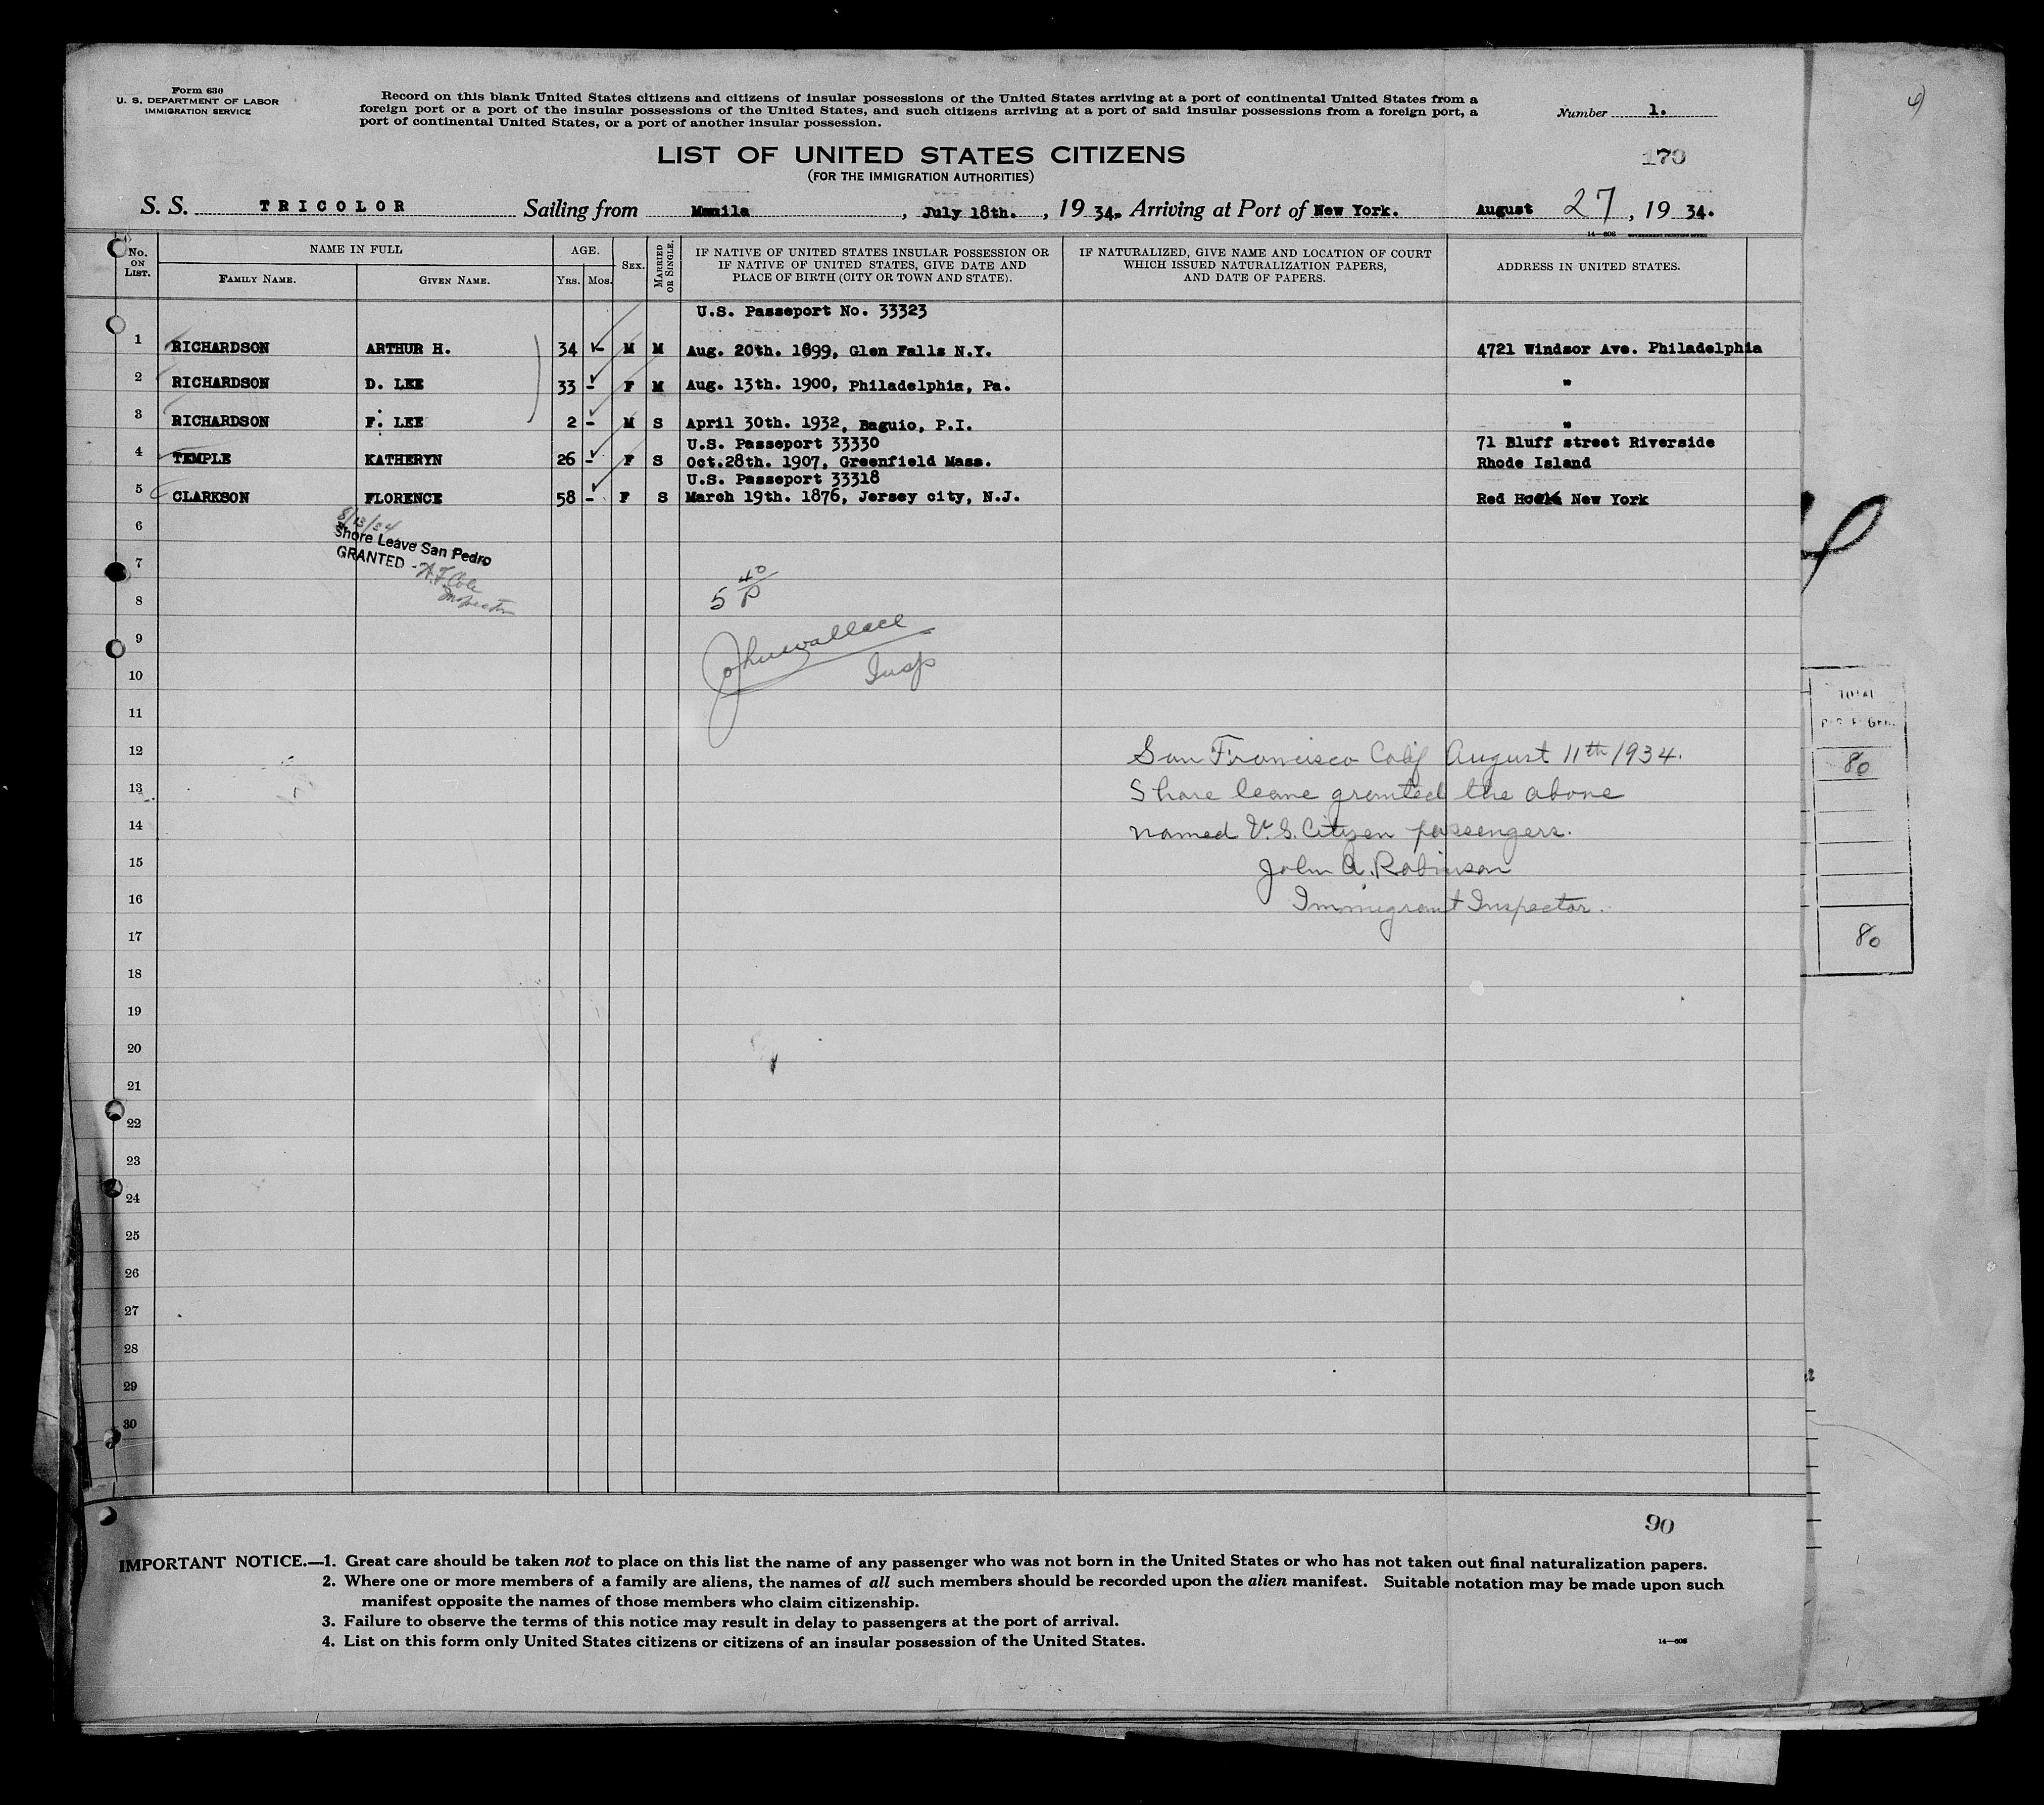 Form 630
U. S. DEPARTMENT OF LABOR
IMMIGRATION SERVICE
Record on this blank United States citizens and citizens of insular possessions of the United States arriving at a port of continental United States from a
foreign port or a port of the insular possessions of the United States, and such citizens arriving at a port of said insular possessions from a foreign port, a
port of continental United States, or a port of another insular possession.
Number 1.
LIST OF UNITED STATES CITIZENS
170
(FOR THE IMMIGRATION AUTHORITIES)
S. S. TRICOLOR Sailing from Manila, July 18th., 1934. Arriving at Port of New York. August 27, 1934.
14—608 GOVERNMENT PRINTING OFFICE
No. ON LIST. NAME IN FULL FAMILY NAME. GIVEN NAME. AGE. YRS. MOS. SEX. MARRIED OR SINGLE. IF NATIVE OF UNITED STATES INSULAR POSSESSION OR IF NATIVE OF UNITED STATES, GIVE DATE AND PLACE OF BIRTH (CITY OR TOWN AND STATE). IF NATURALIZED, GIVE NAME AND LOCATION OF COURT WHICH ISSUED NATURALIZATION PAPERS, AND DATE OF PAPERS. ADDRESS IN UNITED STATES.
U.S. Passeport No. 33323
1 RICHARDSON ARTHUR H. 34 - M M Aug. 20th. 1899, Glen Falls N.Y. 4721 Windsor Ave. Philadelphia
2 RICHARDSON D. LEE 33 - F M Aug. 13th. 1900, Philadelphia, Pa. "
3 RICHARDSON F. LEE 2 - M S April 30th. 1932, Baguio, P.I. "
U.S. Passeport 33330 71 Bluff street Riverside
4 TEMPLE KATHERYN 26 - F S Oct.28th. 1907, Greenfield Mass. Rhode Island
U.S. Passeport 33318
5 CLARKSON FLORENCE 58 - F S March 19th. 1876, Jersey city, N.J. Red Hook New York
8/13/34
6
Shore Leave San Pedro
GRANTED - A.F. Cole
Inspector
7
5 40/P
8
John Wallace
9
Insp
10
11
12 San Francisco Calif August 11th 1934.
13 Shore leave granted the above
14 named U.S. Citizen passengers.
15 John A. Robinson
16 Immigrant Inspector.
17
18
19
20
21
22
23
24
25
26
27
28
29
30
TOTAL
80
80
90
IMPORTANT NOTICE.—1. Great care should be taken not to place on this list the name of any passenger who was not born in the United States or who has not taken out final naturalization papers.
2. Where one or more members of a family are aliens, the names of all such members should be recorded upon the alien manifest. Suitable notation may be made upon such
manifest opposite the names of those members who claim citizenship.
3. Failure to observe the terms of this notice may result in delay to passengers at the port of arrival.
4. List on this form only United States citizens or citizens of an insular possession of the United States.
14—608